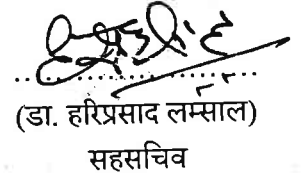 (डा. हरिप्रसाद लम्साल)
सहसचिव